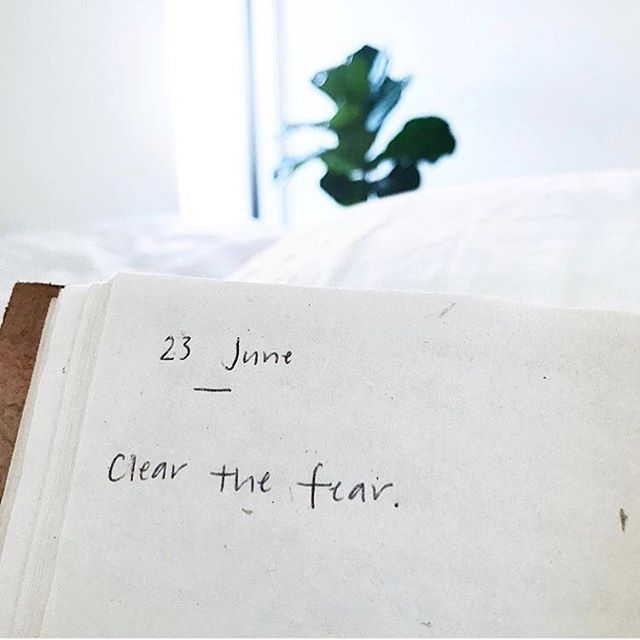 23 June
Clear the fear.